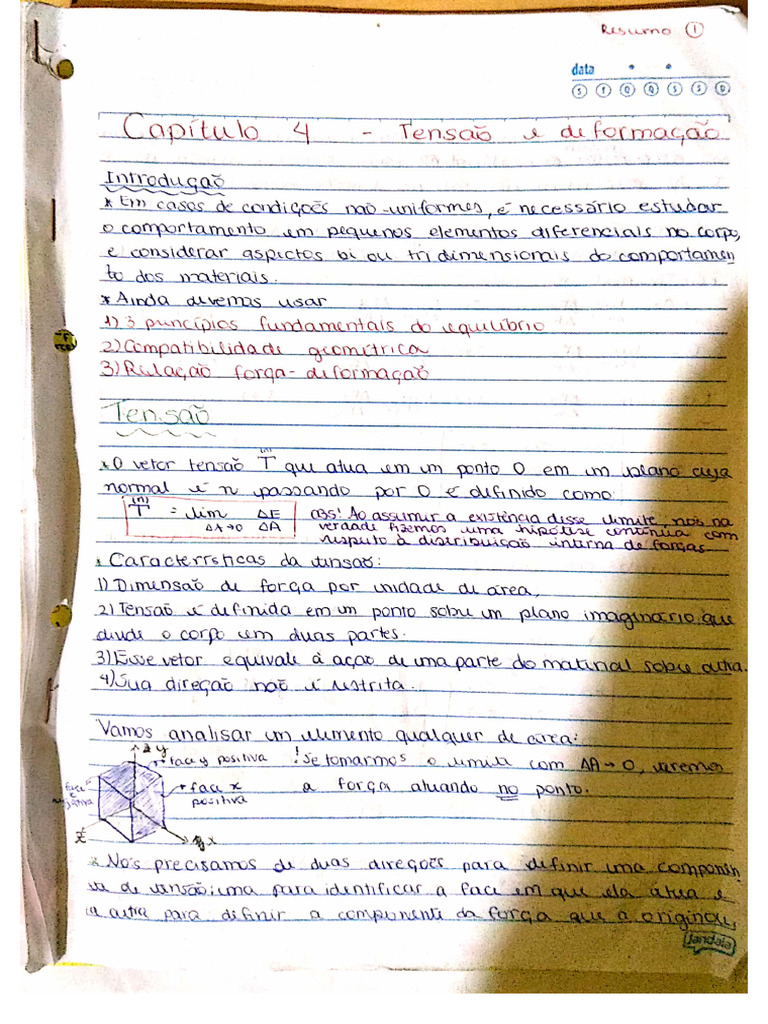 Resumo ①
data
S T Q Q S S D
Capítulo 4 - Tensão e deformação
Introdução
* Em casos de condições não-uniformes, é necessário estudar
o comportamento em pequenos elementos diferenciais no corpo,
e considerar aspectos bi ou tridimensionais do comportamen
to dos materiais.
* Ainda devemos usar
1) 3 princípios fundamentais do equilíbrio
2) Compatibilidade geométrica
3) Relação força-deformação
Tensão
* O vetor tensão T⁽ⁿ⁾ que atua em um ponto O em um plano cuja
normal é n passando por O é definido como
T⁽ⁿ⁾ = lim ΔA→0 ΔF/ΔA
OBS! Ao assumir a existência desse limite, nós na
verdade fizemos uma hipótese contínua com
respeito à distribuição interna de forças
* Características da tensão:
1) Dimensão de força por unidade de área.
2) Tensão é definida em um ponto sobre um plano imaginário que
divide o corpo em duas partes.
3) Esse vetor equivale à ação de uma parte do material sobre outra.
4) Sua direção não é restrita.
Vamos analisar um elemento qualquer de área:
y
face y positiva
! Se tomarmos o limite com ΔA→0, veremos
a força atuando no ponto.
face x
positiva
face
negativa
z
x
* Nós precisamos de duas direções para definir uma componen
te de tensão: uma para identificar a face em que ela atua e
a outra para definir a componente da força que a originou,
jandaia